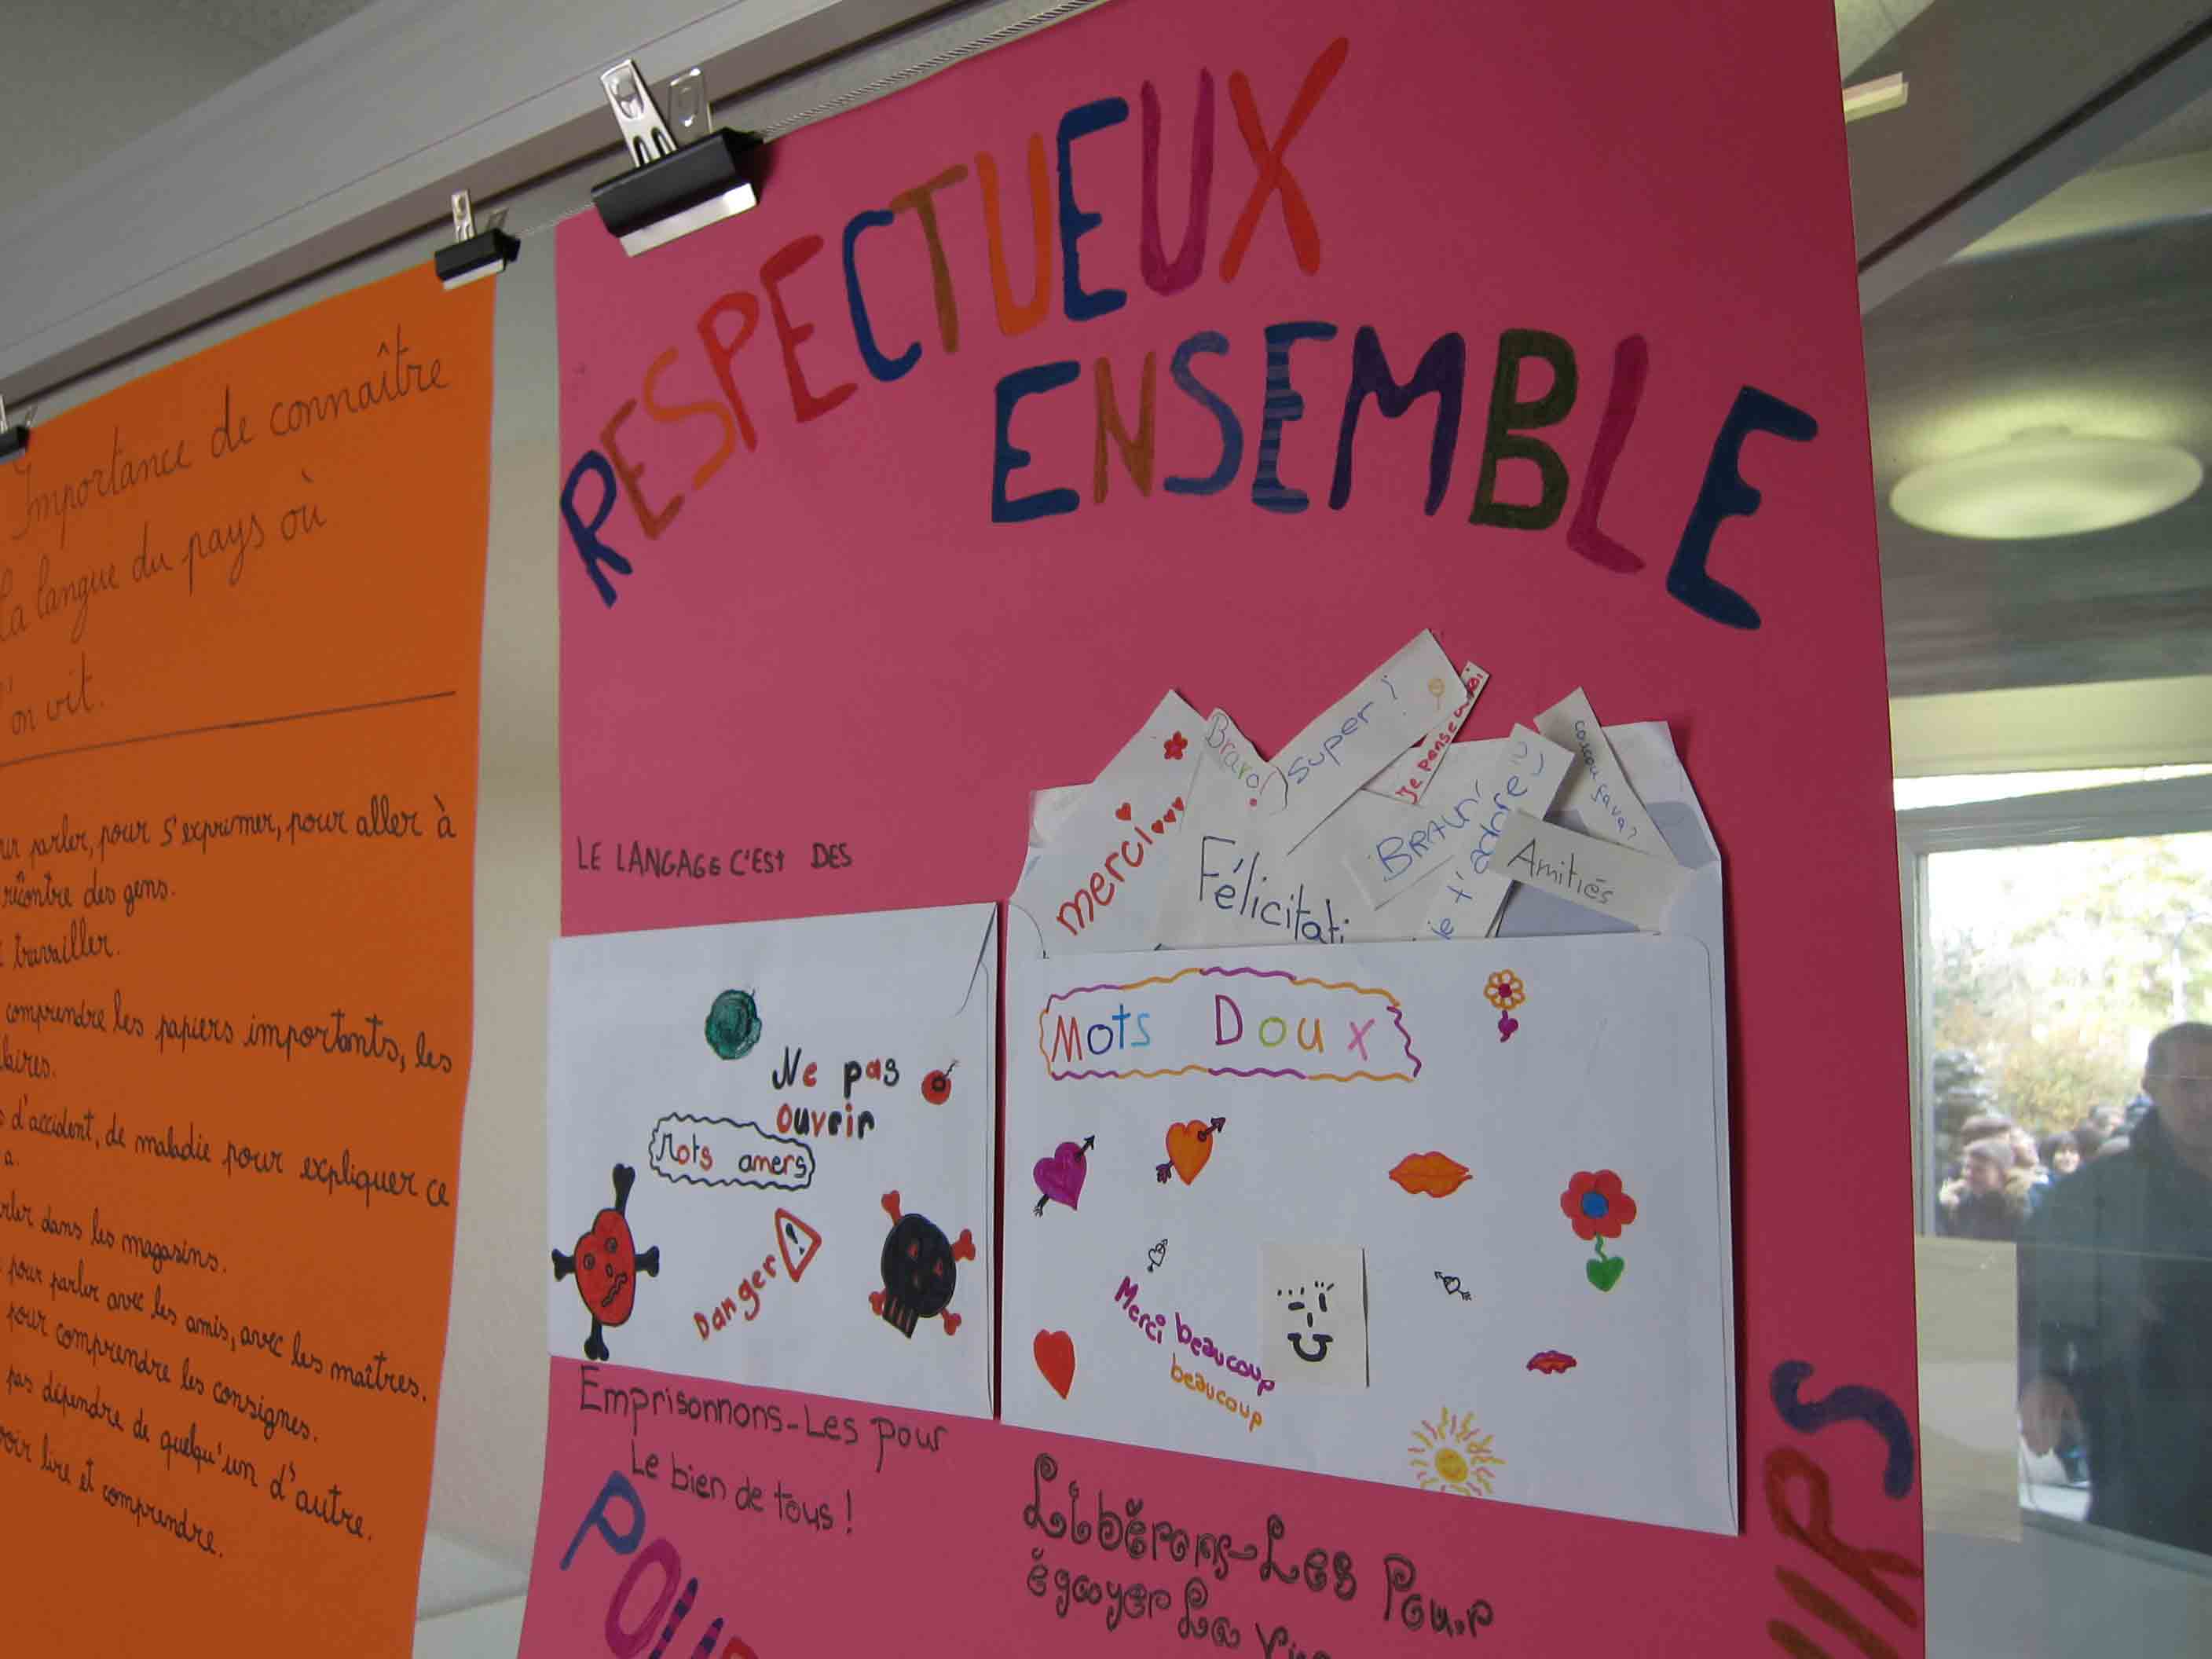 Importance de connaître
la langue du pays où
l'on vit.
parler, pour s'exprimer, pour aller à
rencontre des gens.
travailler.
comprendre les papiers importants, les
d'accident, de maladie pour expliquer ce
dans les magasins.
pour parler avec les amis, avec les maîtres.
pour comprendre les consignes.
pas dépendre de quelqu'un d'autre.
lire et comprendre.
RESPECTUEUX
ENSEMBLE
LE LANGAGE C'EST DES
merci
Bravo!
super!
Je pense
Félicitati
BRAVO
je t'adore
coucou ça va?
Amitiés
Ne pas
ouvrir
Mots amers
Danger
!
Mots Doux
Merci beaucoup
beaucoup
Emprisonnons-Les pour
Le bien de tous!
Libérons-Les Pour
égayer La Vie
POUR
URS